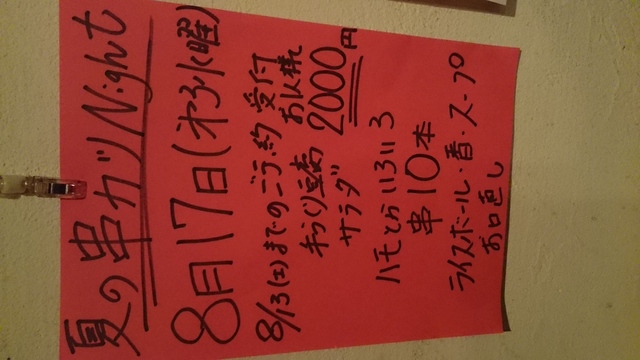 夏の串カツNight
8月17日(第3水曜)
8/13(土)までのご予約受付
お1人様
2000円
手づくり豆腐
サラダ
ハモからいろいろ
串10本
ライスボール・香・スープ
お口直し